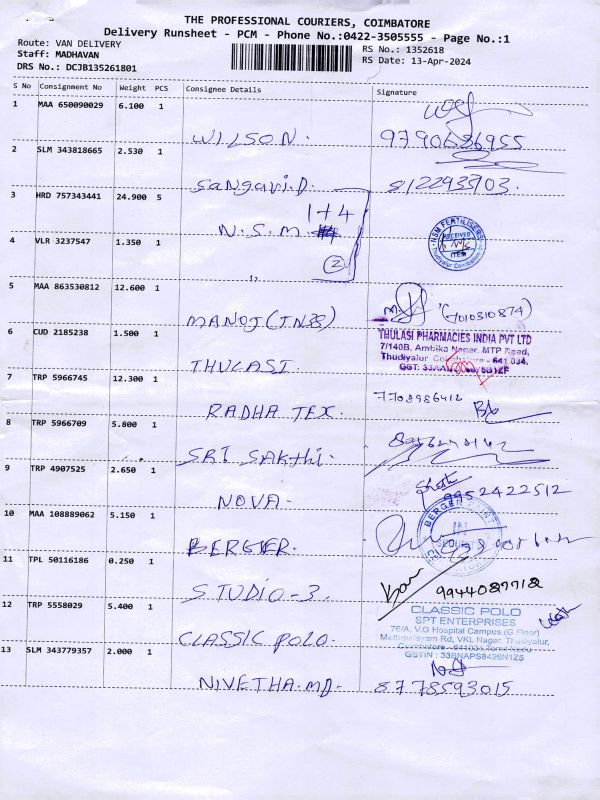 THE PROFESSIONAL COURIERS, COIMBATORE
Delivery Runsheet - PCM - Phone No.:0422-3505555 - Page No.:1
Route: VAN DELIVERY
Staff: MADHAVAN
DRS No.: DCJB135261801
RS No.: 1352618
RS Date: 13-Apr-2024
S No Consignment No Weight PCS Consignee Details Signature
1 MAA 650090029 6.100 1
WILSON. 9790686955
2 SLM 343818665 2.530 1
Sangavi.D. 812293903.
3 HRD 757343441 24.900 5
1+4
N.S.M
NSM FERTILISERS
RECEIVED
ITEM
Thudiyalur Coimbatore
4 VLR 3237547 1.350 1
2
5 MAA 863530812 12.600 1
MANOJ (TN38) (7010310874)
6 CUD 2185238 1.500 1
THULASI
THULASI PHARMACIES INDIA PVT LTD
7/140B, Ambika Nagar, MTP Road,
Thudiyalur Coimbatore - 641 034.
GST: 33AA
7 TRP 5966745 12.300 1
RADHA TEX. 7708986412
8 TRP 5966709 5.800 1
SRI SAKTHI.
9 TRP 4907525 2.650 1
NOVA. 9952422512
10 MAA 108889062 5.150 1
BERGER.
BERGER PAINT
IN
SECURITY
11 TPL 50116186 0.250 1
STUDIO-3. 9944087712
12 TRP 5558029 5.400 1
CLASSIC POLO.
CLASSIC POLO
SPT ENTERPRISES
79/A, V.G Hospital Campus,(G.Floor)
Mettupalayam Rd, VKL Nagar, Thudiyalur,
Coimbatore - 641034. Tamil Nadu
GSTIN : 33BNAPS8426N1Z5
13 SLM 343779357 2.000 1
NIVETHA.MD. 8778593015